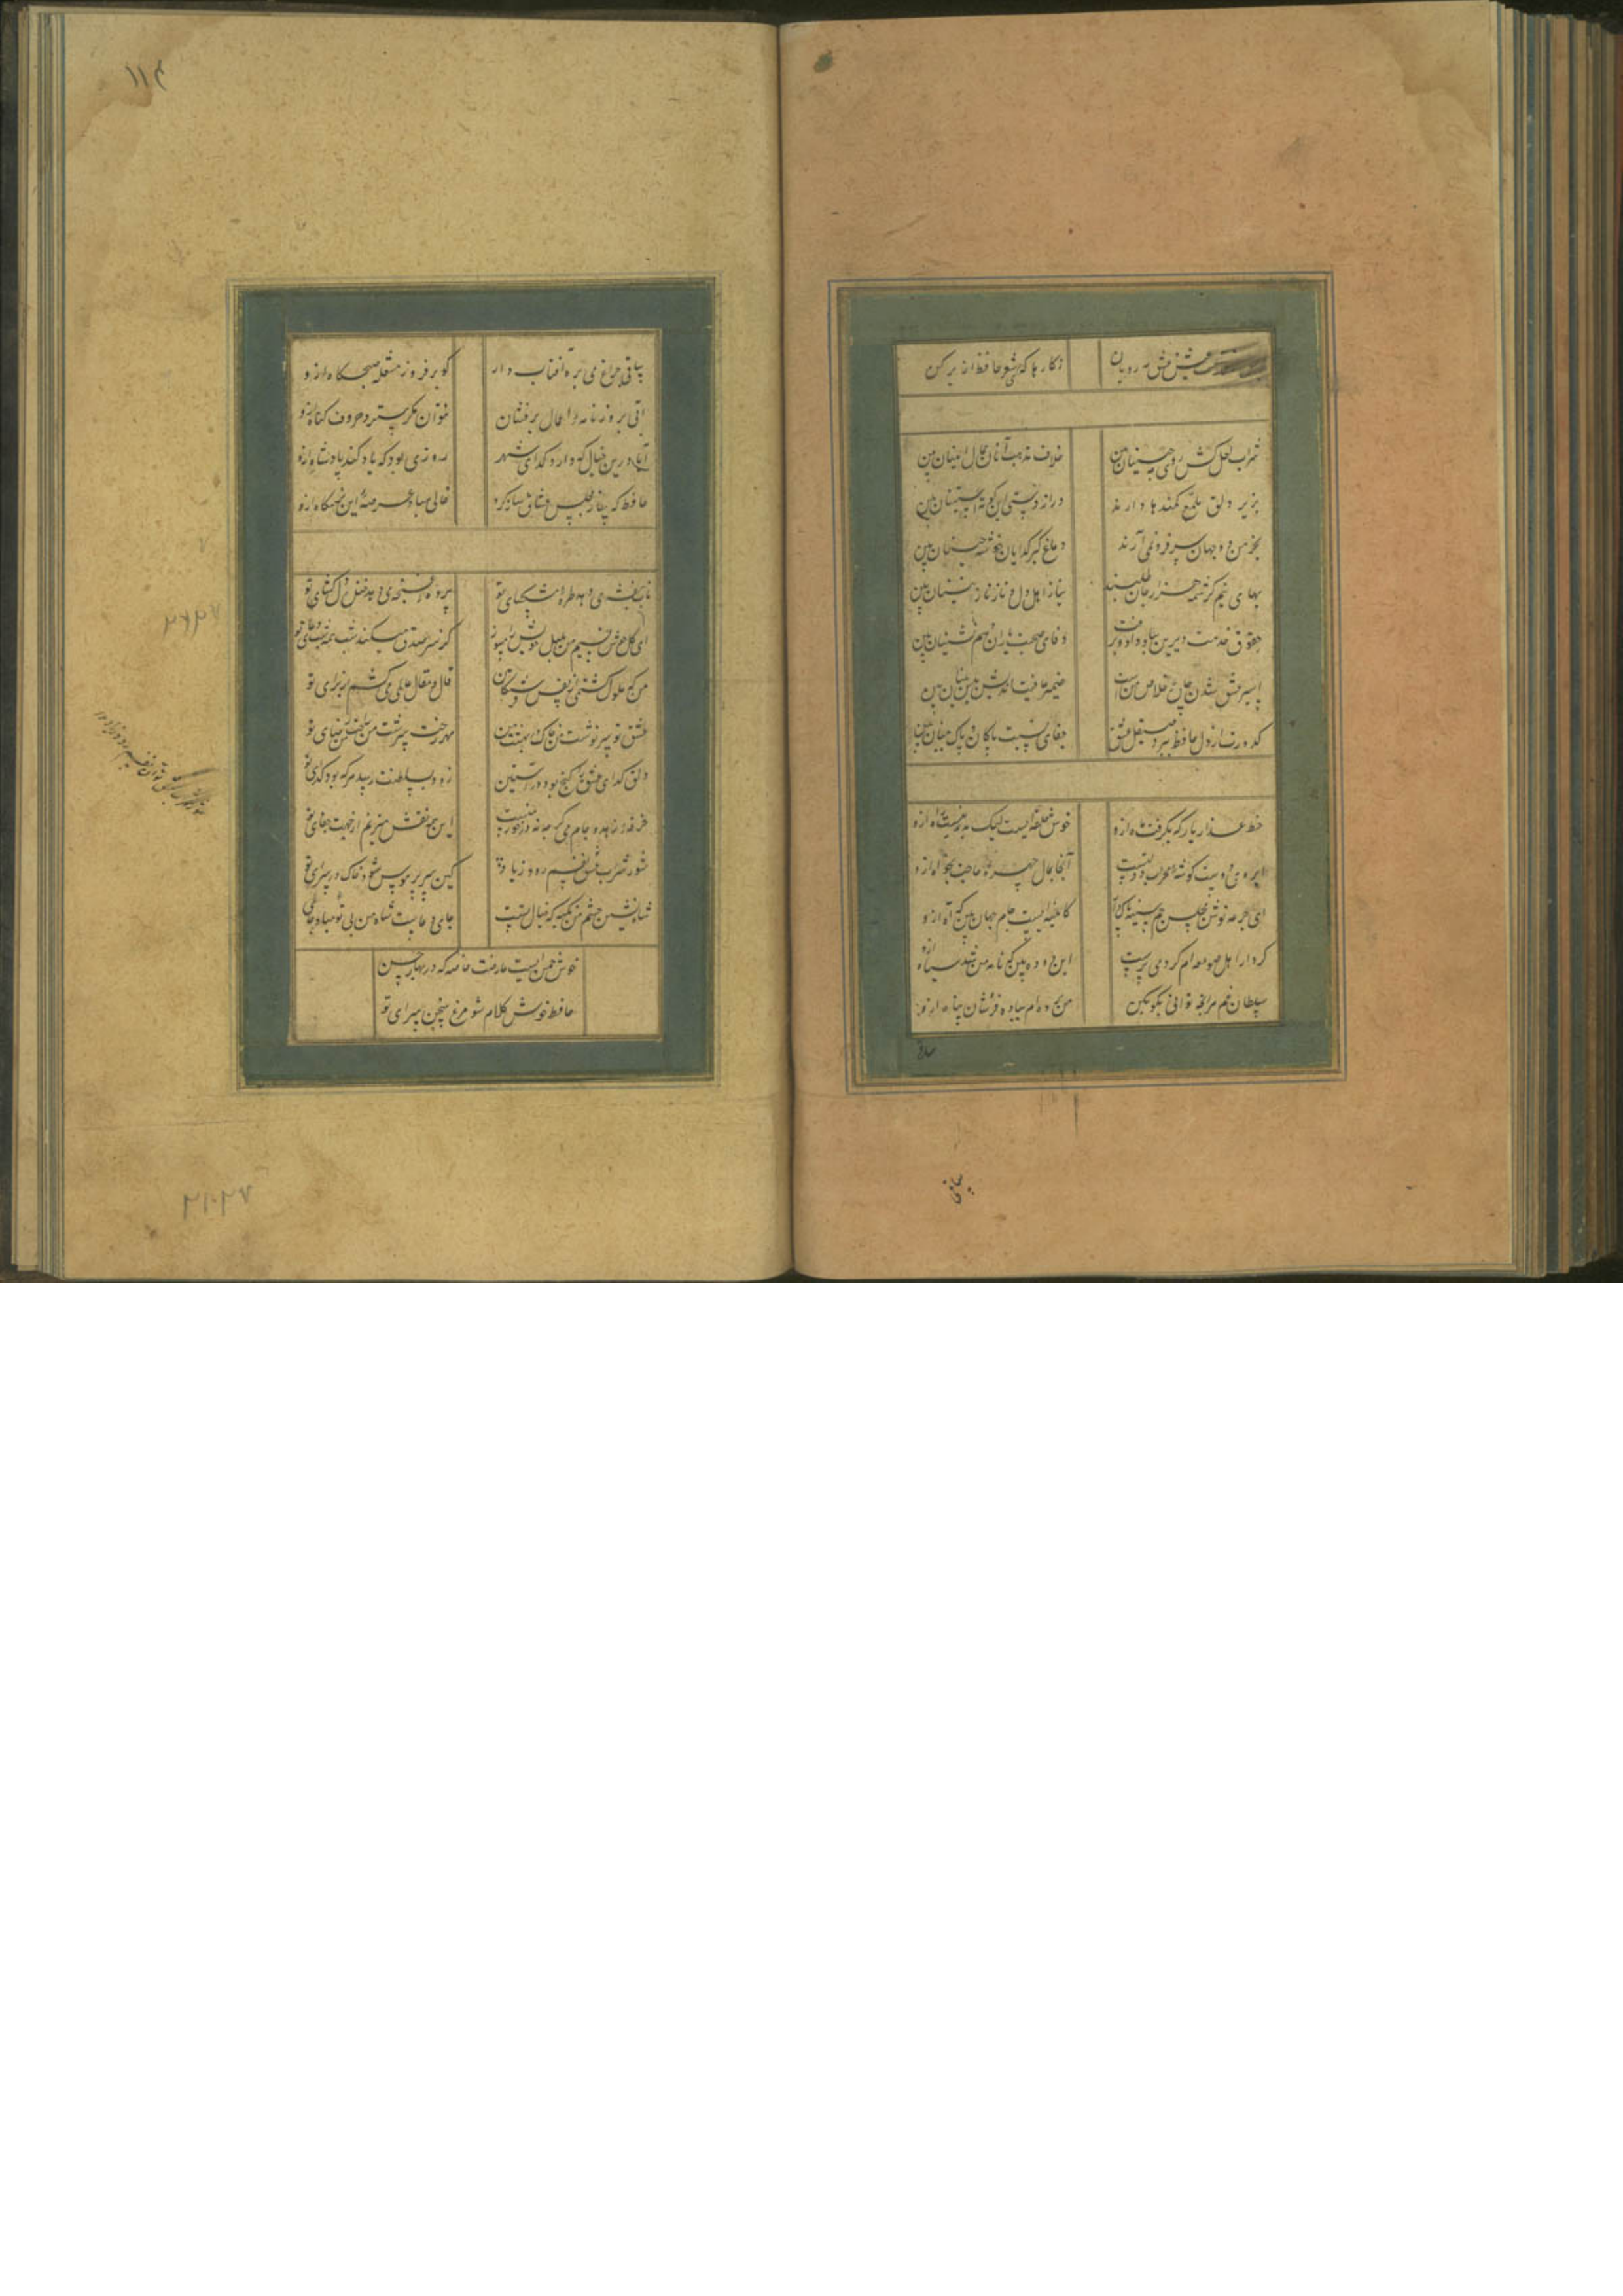 پس از ملازمت عیش و عشق مه رویان
ز کارها که کنی شعر حافظ از بر کن
شراب لعل کش و روی مه جبینان بین
خلاف مذهب آنان جمال اینان بین
بزیر دلق ملمع کمندها دارند
دراز دستی این کوته آستینان بین
بخرمن دو جهان سر فرو نمی آرند
دماغ کبر گدایان خوشه چینان بین
بهای نیم کرشمه هزار جان طلبند
نیاز اهل دل و ناز نازنینان بین
حقوق خدمت دیرین بباد داد و برفت
وفای صحبت یاران و همنشینان بین
اسیر عشق شدن چاره خلاص منست
ضمیر عاقبت اندیش پیش بینان بین
کدورت از دل حافظ ببرد صیقل عشق
صفای نسبت پاکان و پاک بینان بین
خط عذار یار که بگرفت ماه ازو
خوش حلقه ایست لیک بدر نیست راه ازو
ابروی دوست گوشه محراب دولتست
آنجا بمال چهره و حاجت بخواه ازو
ای جرعه نوش مجلس جم سینه پاک دار
کآیینه ایست جام جهان بین که آه ازو
کردار اهل صومعه ام کرد می پرست
این دوده بین که نامه من شد سیاه ازو
سلطان غم هر آنچه توانی بگو بکن
من برده ام بباده فروشان پناه ازو
ساقی
ساقی
۱۱۴
ساقی چراغ می بره آفتاب دار
گو بر فروز مشعله صبحگاه ازو
آبی بروزنامه اعمال بر فشان
نتوان مگر سترد حروف گناه ازو
آیا درین خیال که دارد گدای شهر
روزی بود که یاد کند پادشاه ازو
حافظ که ساز مجلس عشاق ساز کرد
خالی مباد عرصه این بزمگاه ازو
تاب بنفشه می دهد طره مشکسای تو
پرده غنچه می درد خنده دلگشای تو
ای گل خوش نسیم من بلبل خویش را مسوز
کز سر صدق میکند شب همه شب دعای تو
من که ملول گشتمی از نفس فرشتگان
قال و مقال عالمی می کشم از برای تو
عشق تو سرنوشت من خاک درت بهشت من
مهر رخت سرشت من راحت من رضای تو
دلق گدای عشق را گنج بود در آستین
زود بسلطنت رسد هر که بود گدای تو
خرقه زهد و جام می گرچه نه در خور همست
این همه نقش میزنم از جهت رضای تو
شور شراب عشق تو آن نفسم رود ز سر
کین سر پر هوس شود خاک در سرای تو
شاه نشین چشم من تکیه گه خیال تست
جای دعاست شاه من بی تو مباد جای تو
خوش چمنی است عارضت خاصه که در بهار حسن
حافظ خوش کلام شد مرغ سخن سرای تو